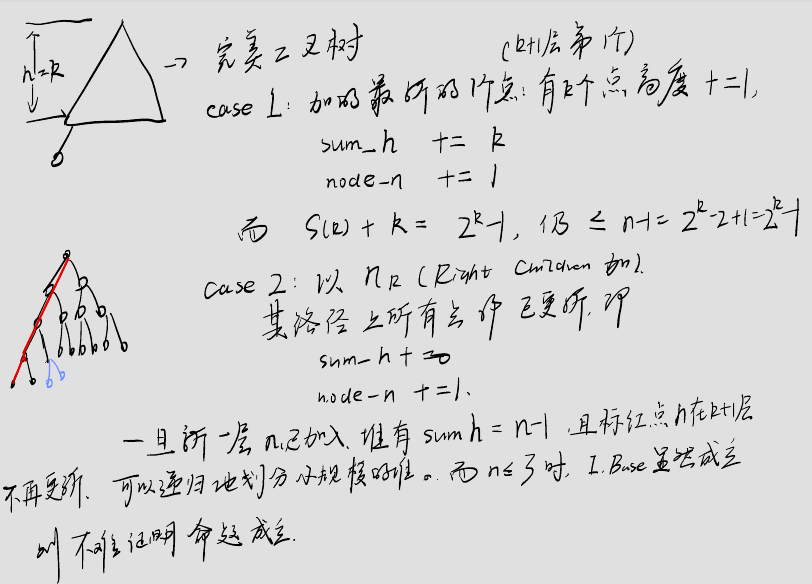 h=k
→ 完美二叉树
(k+1层第1个)
case 1: 加的最新的1个点: 有k个点高度 +=1,
sum_h += k
node_n += 1
而 S(k) + k = 2^k-1, 仍 ≤ n-1 = 2^k-2+1=2^k-1
case 2: 以 n_R (Right Children 加).
其路径上所有点都已更新, 即
sum_h += 0
node_n += 1.
一旦新一层 n_1已加入, 堆有 sum h = n-1, 且标红点 h 在k+1层
不再更新. 可以递归地划分小规模的堆。而 n≤3时, I.Base 显然成立
则不难证明命题成立.